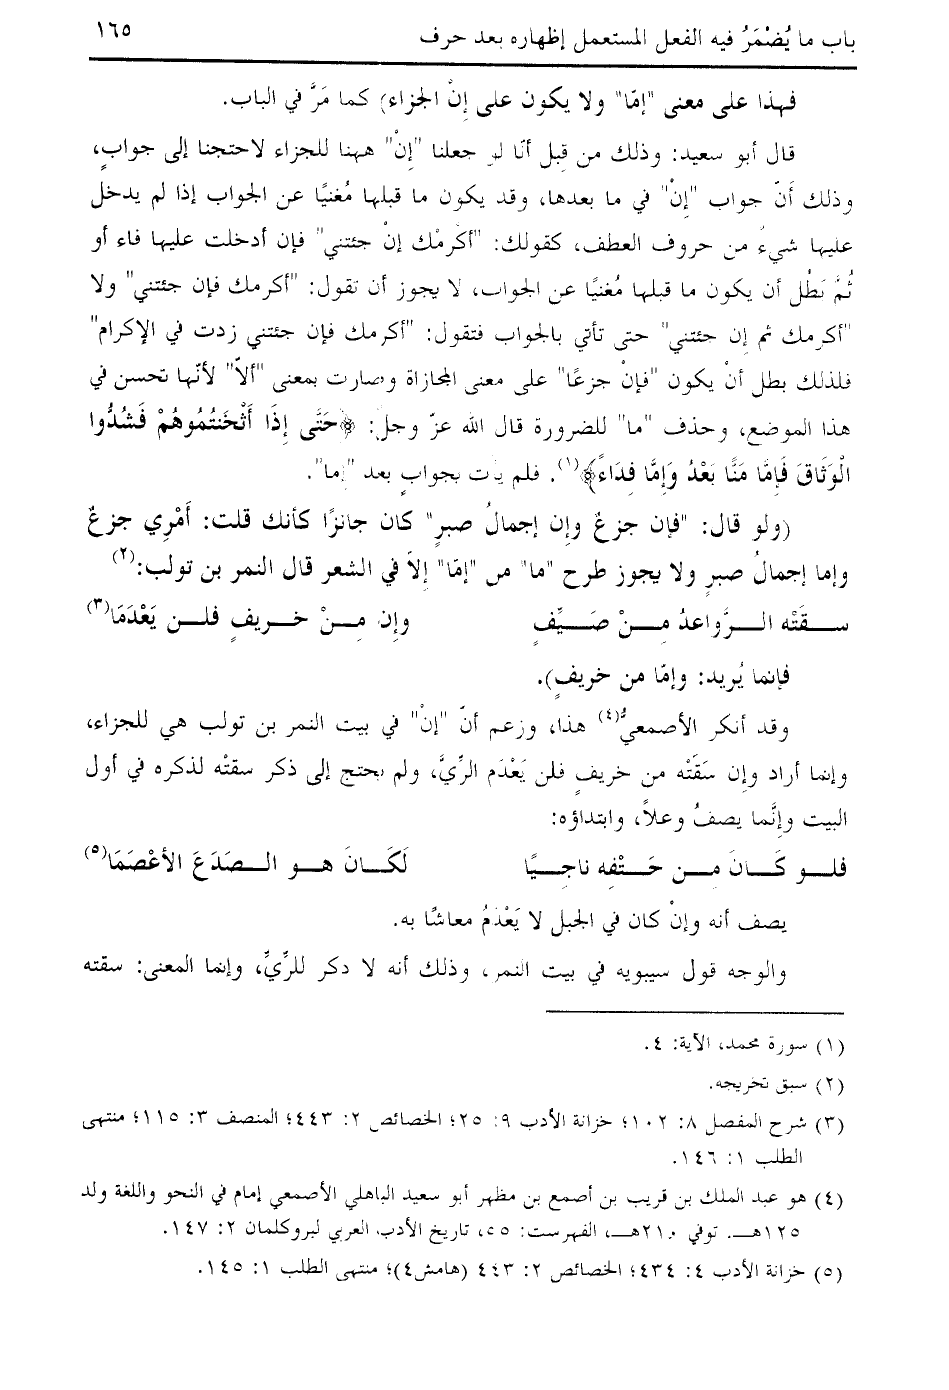 باب ما يُضْمَرُ فيه الفعل المستعمل إظهاره بعد حرف ١٦٥
فهذا على معنى "إمّا" ولا يكون على إنْ الجزاء) كما مَرَّ في الباب.
قال أبو سعيد: وذلك من قبل أنّا لو جعلنا "إنْ" ههنا للجزاء لاحتجنا إلى جوابٍ،
وذلك أنّ جواب "إنْ" في ما بعدها، وقد يكون ما قبلها مُغنيًا عن الجواب إذا لم يدخل
عليها شيءٌ من حروف العطف، كقولك: "أكرمْك إنْ جئتني" فإن أدخلت عليها فاء أو
ثُمَّ بَطُل أن يكون ما قبلها مُغنيًا عن الجواب، لا يجوز أن تقول: "أكرمك فإن جئتني" ولا
"أكرمك ثم إن جئتني" حتى تأتي بالجواب فتقول: "أكرمك فإن جئتني زدت في الإكرام"
فلذلك بطل أنْ يكون "فإنْ جزعًا" على معنى المجازاة وصارت بمعنى "ألاّ" لأنّها تحسن في
هذا الموضع، وحذف "ما" للضرورة قال الله عزّ وجلّ: ﴿حَتَّى إِذَا أَثْخَنتُمُوهُمْ فَشُدُّوا
الْوَثَاقَ فَإِمَّا مَنًّا بَعْدُ وَإِمَّا فِدَاءً﴾(١). فلم يأت بجوابٍ بعد "إما".
(ولو قال: "فإن جزعٌ وإن إجمالُ صبرٍ" كان جائزًا كأنك قلت: أَمْرِي جزعٌ
وإما إجمالُ صبرٍ ولا يجوز طرح "ما" من "إمّا" إلاّ في الشعر قال النمر بن تولب:(٢)
سـقَتْه الـرَّواعدُ مـنْ صَـيِّفٍ وإن مـنْ خـريفٍ فلـن يَعْدَمَا(٣)
فإنما يُريد: وإمّا من خريفٍ).
وقد أنكر الأصمعيُّ(٤) هذا، وزعم أنّ "إنْ" في بيت النمر بن تولب هي للجزاء،
وإنما أراد وإن سَقَتْه من خريفٍ فلن يَعْدَم الرِّيَّ، ولم يحتج إلى ذكر سقتْه لذكره في أول
البيت وإنَّما يصفُ وعلاً، وابتداؤه:
فلـو كَـانَ مـن حَـتْفِه ناجـيًا لَكَـانَ هـو الـصَدَعَ الأعْصَمَا(٥)
يصف أنه وإنْ كان في الجبل لا يَعْدَمُ معاشًا به.
والوجه قول سيبويه في بيت النمر، وذلك أنه لا ذكر للرِّيِّ، وإنما المعنى: سقته
(١) سورة محمد، الآية: ٤.
(٢) سبق تخريجه.
(٣) شرح المفصل ٨: ١٠٢؛ خزانة الأدب ٩: ٢٥؛ الخصائص ٢: ٤٤٣؛ المنصف ٣: ١١٥؛ منتهى
الطلب ١: ١٤٦.
(٤) هو عبد الملك بن قريب بن أصمع بن مظهر أبو سعيد الباهلي الأصمعي إمام في النحو واللغة ولد
١٢٥هـ. توفي ٢١٠هـ، الفهرست: ٥٥، تاريخ الأدب العربي لبروكلمان ٢: ١٤٧.
(٥) خزانة الأدب ٤: ٤٣٤؛ الخصائص ٢: ٤٤٣ (هامش٤)؛ منتهى الطلب ١: ١٤٥.